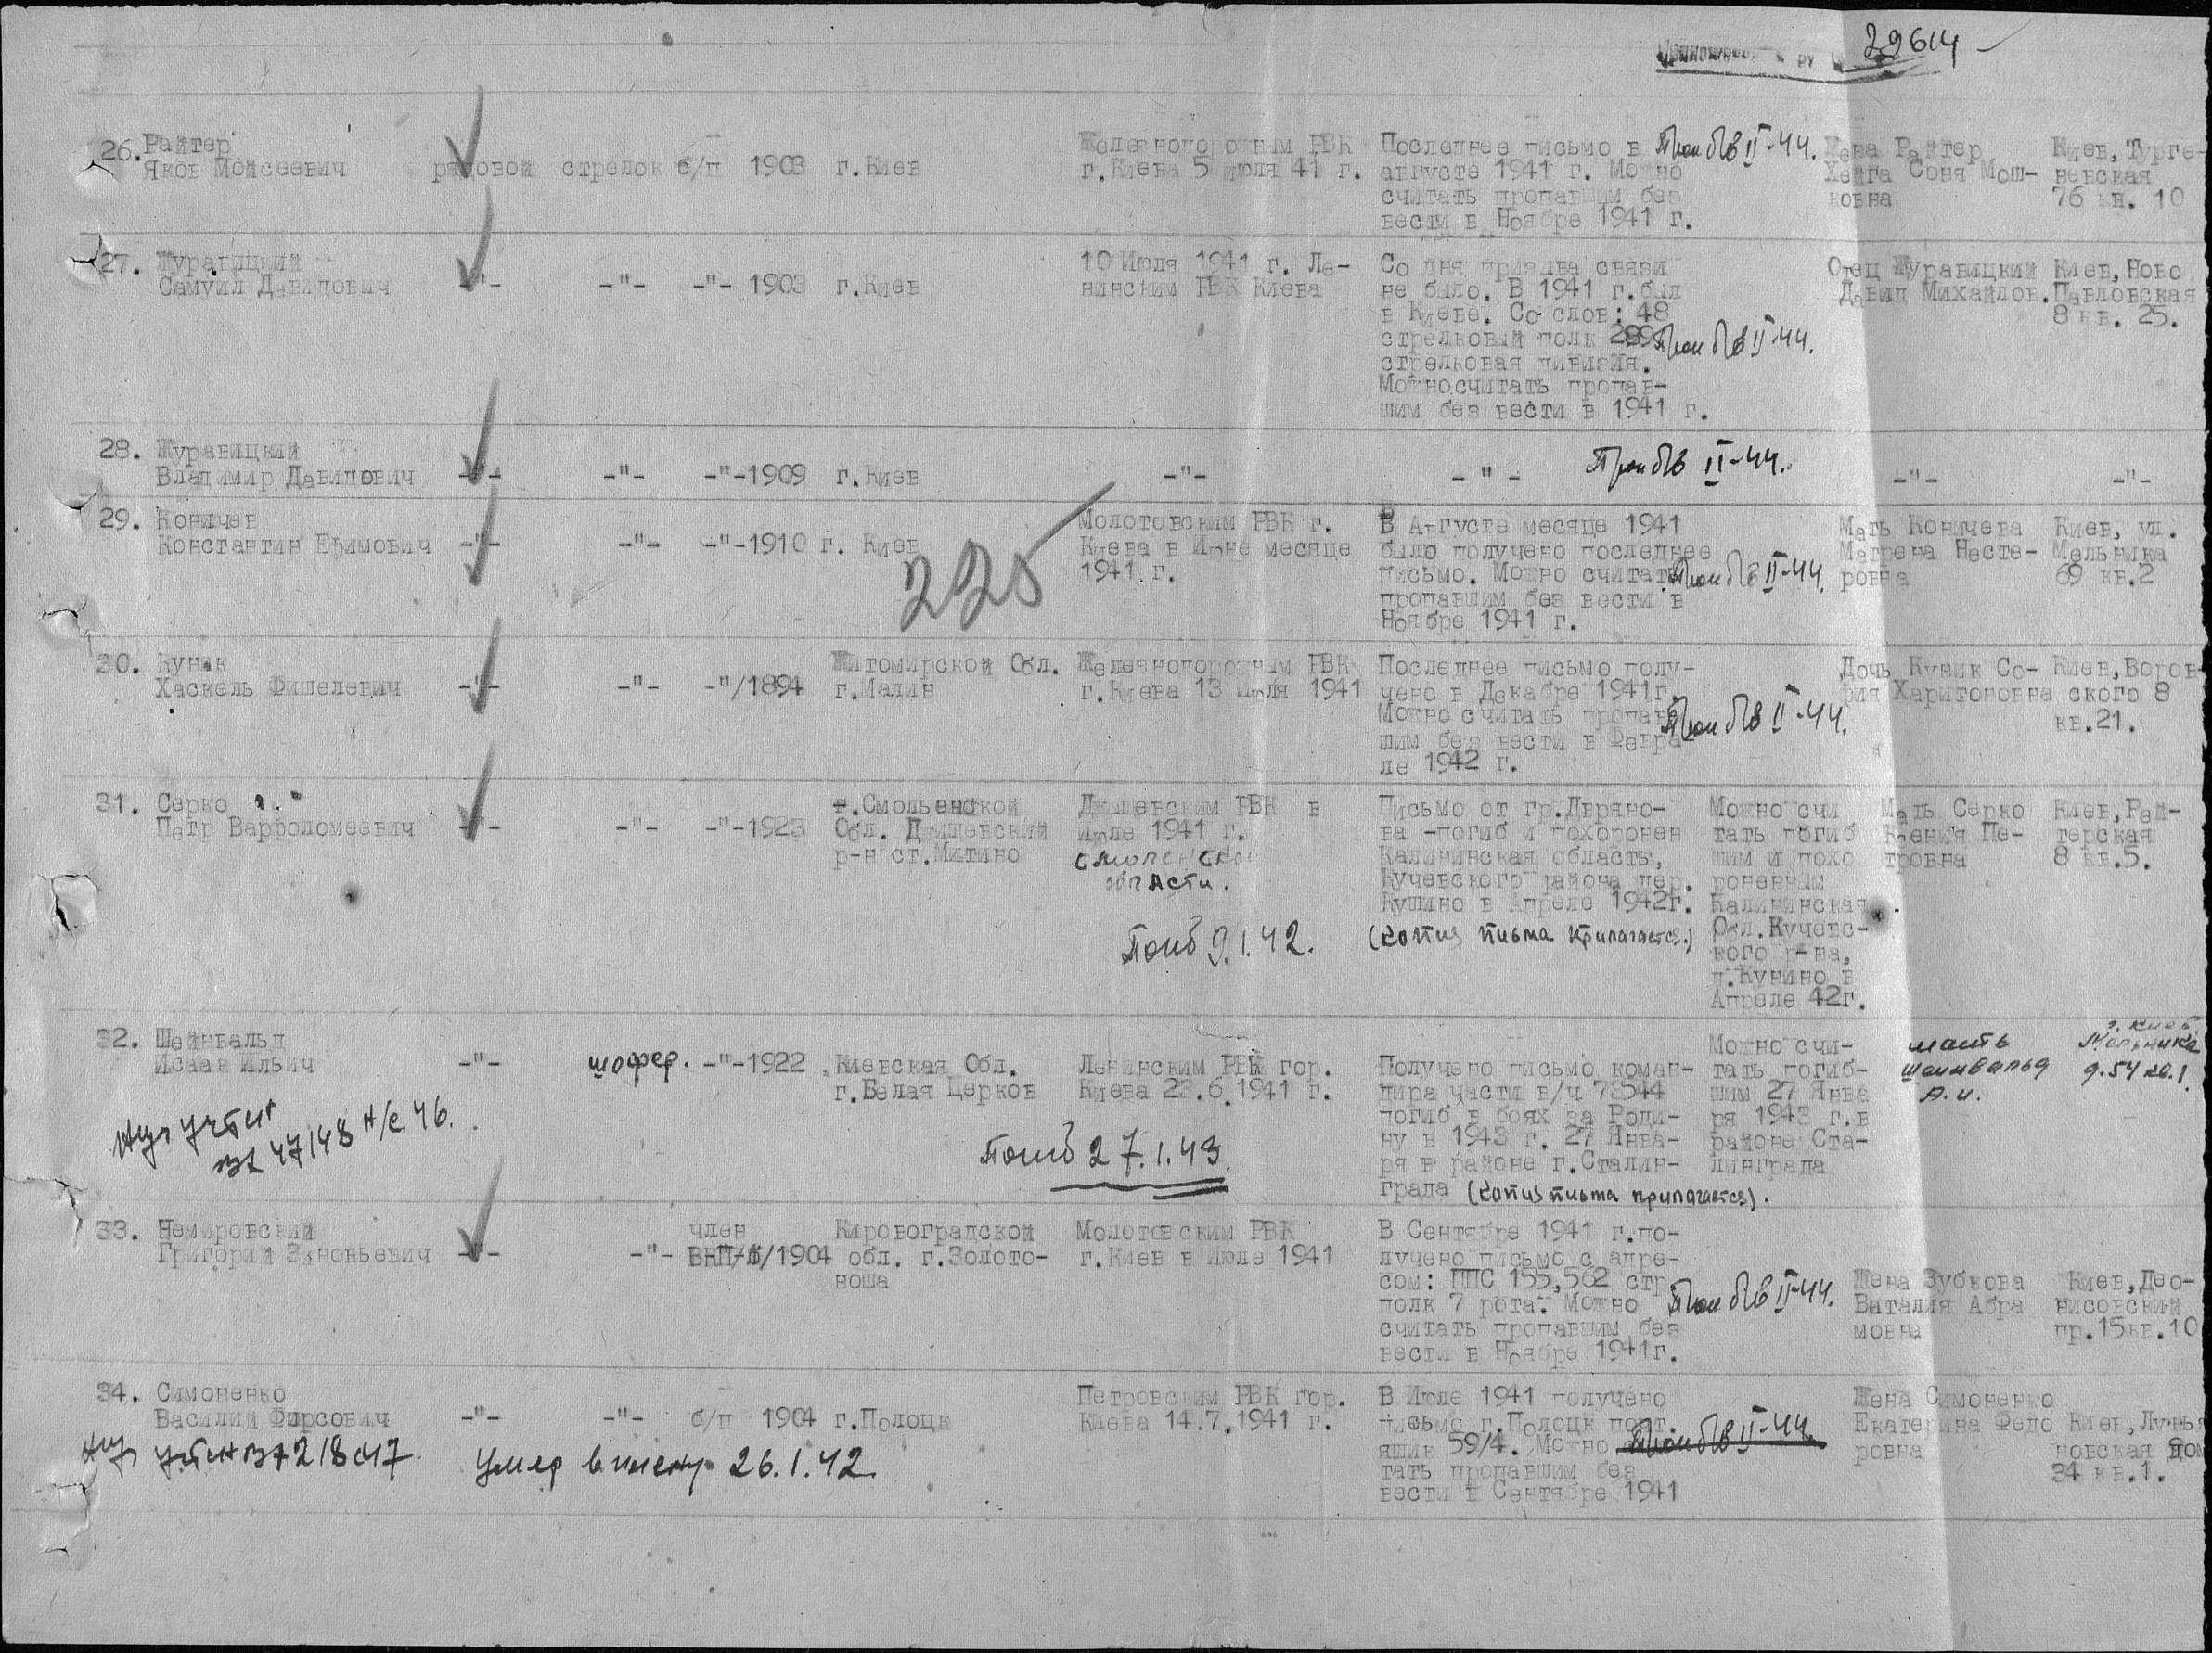 29614
26. Райтер
Яков Мойсеевич рядовой стрелок б/п 1903 г.Киев
Железнодорожным РВК
г.Киева 5 июля 41 г.
Последнее письмо в
августе 1941 г. Можно
считать пропавшим без
вести в Ноябре 1941 г.
Проп б/в II-44.
Жена Райтер
Хейга Соня Мош-
ковна
Киев, Турге-
невская
76 кв. 10
27. Журавицкий
Самуил Давидович -"- -"- -"- 1903 г.Киев
10 Июля 1941 г. Ле-
нинским РВК Киева
Со дня призыва связи
не было. В 1941 г.был
в Киеве. Со слов: 48
стрелковый полк 289
стрелковая дивизия.
Можносчитать пропав-
шим без вести в 1941 г.
Проп б/в II-44.
Отец Журавицкий
Давид Михайлов.
Киев, Ново
Павловская
8 кв. 25.
28. Журавицкий
Владимир Давидович -"- -"- -"-1909 г.Киев -"- -"- Проп б/в II-44. -"- -"-
29. Коничев
Константин Ефимович -"- -"- -"-1910 г. Киев
225
Молотовским РВК г.
Киева в Июне месяце
1941 г.
В Августе месяце 1941
было получено последнее
письмо. Можно считать
пропавшим без вести в
Ноябре 1941 г.
Проп б/в II-44.
Мать Коничева
Матрена Несте-
ровна
Киев, ул.
Мельника
69 кв.2
30. Куник
Хаскель Фишелевич -"- -"- -"/1894
Житомирской Обл.
г.Малин
Железнодорожным РВК
г.Киева 13 Июля 1941
Последнее письмо полу-
чено в Декабре 1941г.
Можно считать пропав
шим без вести в Февра-
ле 1942 г.
Проп б/в II-44.
Дочь Куник Со-
фия Харитоновна
Киев, Воров-
ского 8
кв.21.
31. Серко
Петр Варфоломеевич -"- -"- -"-1923
г.Смольенской
Обл. Дпишевский
р-н ст.Митино
Дпишевским РВК в
Июле 1941 г.
смоленской
области.
Погиб 9.1.42.
Письмо от гр.Двряно-
ва -погиб и похоронен
Калининская область,
Кучевского района дер.
Кушино в Апреле 1942г.
(копия письма прилагается.)
Можно счи
тать погиб
шим и похо
роненным
Калининская
Обл.Кучевс-
кого р-на,
д.Кунино в
Апреле 42г.
Мать Серко
Ксения Пе-
тровна
Киев, Рей-
терская
8 кв.5.
32. Шейнвальд
Исаак Ильич -"- шофер. -"-1922
Киевская Обл.
г.Белая Церков
Ленинским РВК гор.
Киева 23.6.1941 г.
47148 н/с 46.
Погиб 27.1.43.
Получено письмо коман-
дира части в/ч 78544
погиб в боях за Роди-
ну в 1943 г. 27 Янва-
ря в районе г.Сталин-
града (копия письма прилагается).
Можно счи-
тать погиб-
шим 27 Янва
ря 1943 г.в
районе Ста-
линграда
мать
Шейнвальд
А.И.
г. Киев.
Мельника
д.54 кв.1.
33. Немировский
Григорий Зиновьевич -"- -"-
член
ВКП/б/1904
Кировоградской
обл. г.Золото-
ноша
Молотовским РВК
г.Киев в Июле 1941
В Сентябре 1941 г.по-
лучено письмо с адре-
сом: ППС 155,562 стр
полк 7 рота. Можно
считать пропавшим без
вести в Ноябре 1941г.
Проп б/в II-44.
Жена Зубкова
Виталия Абра
мовна
Киев, Део-
нисовский
пр.15кв.10
34. Симоненко
Василий Фирсович -"- -"- б/п 1904 г.Полоцк
Умер в плену 26.1.42.
Петровским РВК гор.
Киева 14.7.1941 г.
В Июле 1941 получено
письмо г.Полоцк почт.
ящик 59/4. Можно
тать пропавшим без
вести в Сентябре 1941
Проп б/в II-44.
Жена Симоненко
Екатерина Федо
ровна
Киев, Лукья
новская дом
34 кв.1.